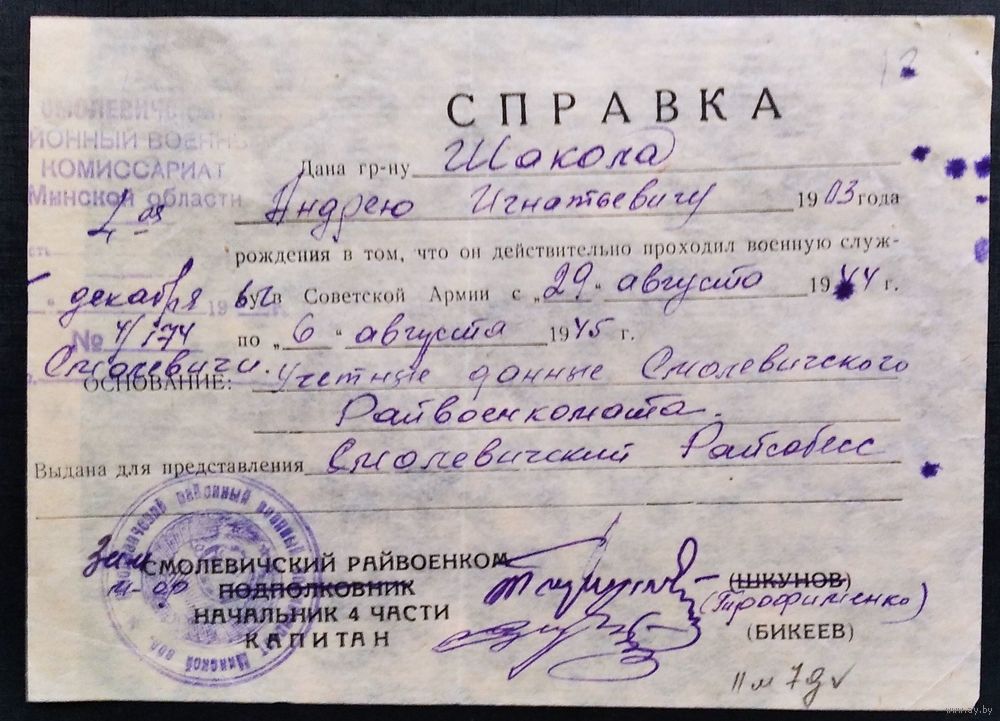 СПРАВКА
СМОЛЕВИЧСКИЙ
РАЙОННЫЙ ВОЕННЫЙ
КОМИССАРИАТ
Минской области
4 ая
декабря 19 61 г.
№ 4/174
г. Смолевичи.
Дана гр-ну Шакола
Андрею Игнатьевичу 1903 года
рождения в том, что он действительно проходил военную служ-
бу в Советской Армии с „29“ августа 1944 г.
по „6“ августа 1945 г.
ОСНОВАНИЕ: Учетные данные Смолевичского
Райвоенкомата.
Выдана для представления Смолевичский Райсобесс
Зам СМОЛЕВИЧСКИЙ РАЙВОЕНКОМ
м-ор ПОДПОЛКОВНИК (ШКУНОВ)
(Трофименко)
НАЧАЛЬНИК 4 ЧАСТИ
КАПИТАН (БИКЕЕВ)
районный военный
Минской обл.
11 м 7 д